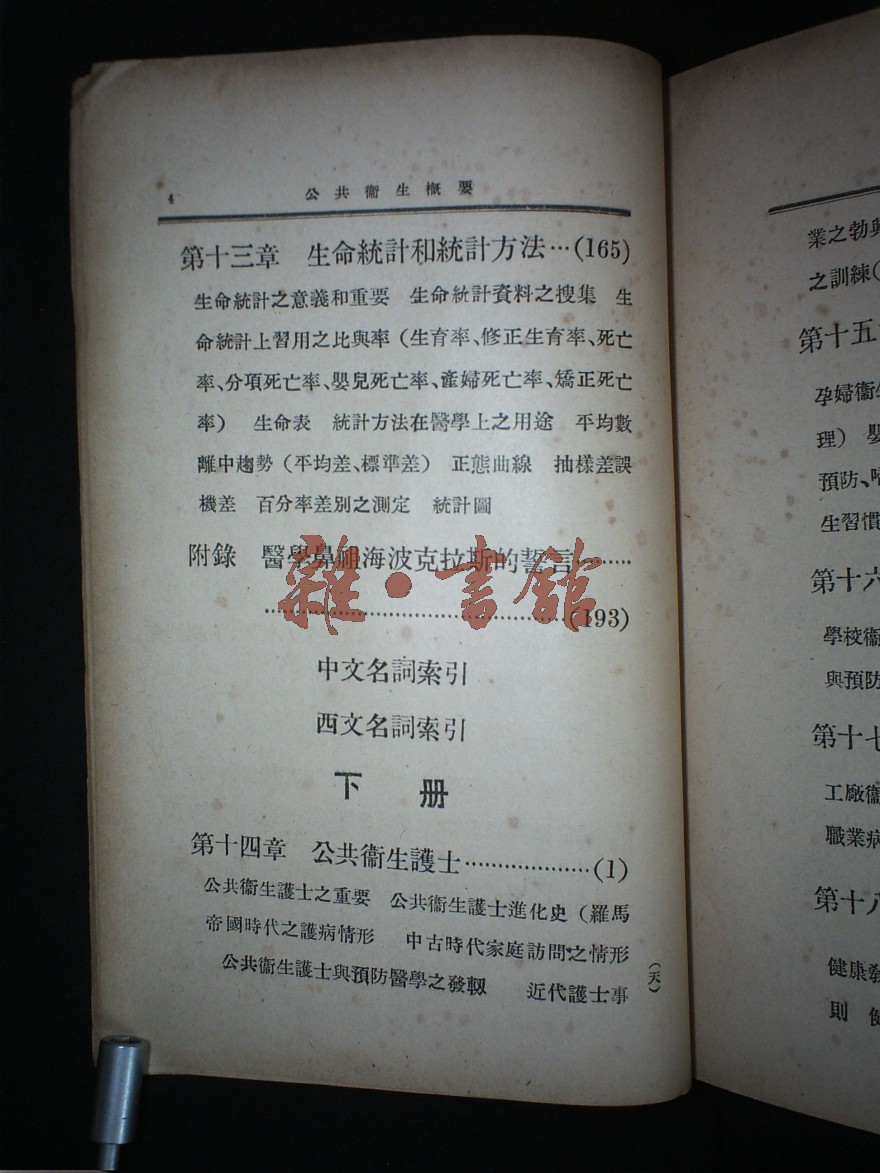 4
公共衞生概要
第十三章 生命統計和統計方法…(165)
生命統計之意義和重要 生命統計資料之搜集 生
命統計上習用之比與率（生育率、修正生育率、死亡
率、分項死亡率、嬰兒死亡率、產婦死亡率、矯正死亡
率） 生命表 統計方法在醫學上之用途 平均數
離中趨勢（平均差、標準差） 正態曲線 抽樣差誤
機差 百分率差別之測定 統計圖
附錄 醫學鼻祖海波克拉斯的誓言………
……………………………………(193)
雜·書館
中文名詞索引
西文名詞索引
下册
第十四章 公共衞生護士…………………(1)
公共衞生護士之重要 公共衞生護士進化史（羅馬
帝國時代之護病情形 中古時代家庭訪問之情形
公共衞生護士與預防醫學之發軔 近代護士事
（天）
業之勃興
之訓練（
第十五
孕婦衞生
理） 嬰
預防、
生習慣
第十六
學校衞
與預防
第十七
工廠衞
職業病
第十八
健康教
則 健